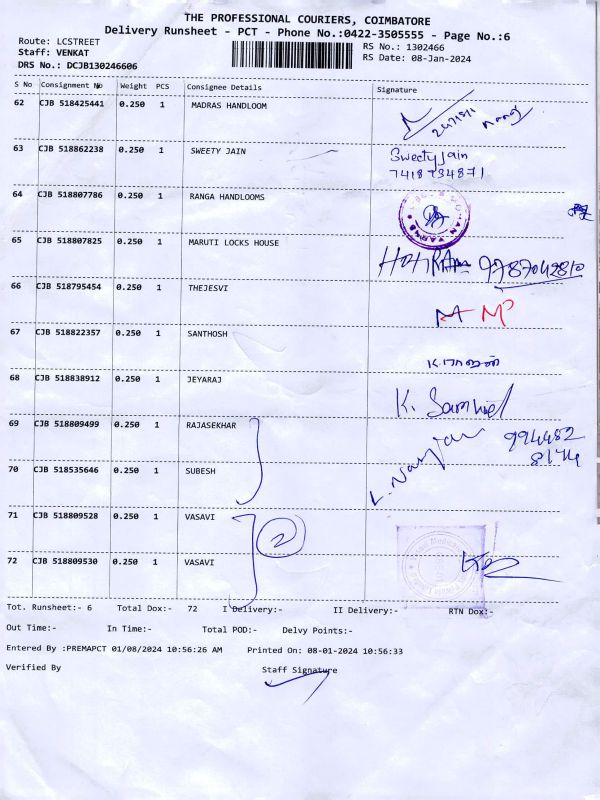 THE PROFESSIONAL COURIERS, COIMBATORE
Delivery Runsheet - PCT - Phone No.:0422-3505555 - Page No.:6
Route: LCSTREET
Staff: VENKAT
DRS No.: DCJB130246606
RS No.: 1302466
RS Date: 08-Jan-2024
S No Consignment No Weight PCS Consignee Details Signature
62 CJB 518425441 0.250 1 MADRAS HANDLOOM
63 CJB 518862238 0.250 1 SWEETY JAIN Sweety Jain
7418734871
64 CJB 518807786 0.250 1 RANGA HANDLOOMS
65 CJB 518807825 0.250 1 MARUTI LOCKS HOUSE 9787042810
66 CJB 518795454 0.250 1 THEJESVI
67 CJB 518822357 0.250 1 SANTHOSH
68 CJB 518838912 0.250 1 JEYARAJ K. Samuel
69 CJB 518809499 0.250 1 RAJASEKHAR 994482
8174
70 CJB 518535646 0.250 1 SUBESH
71 CJB 518809528 0.250 1 VASAVI 2
72 CJB 518809530 0.250 1 VASAVI
Tot. Runsheet:- 6 Total Dox:- 72 I Delivery:- II Delivery:- RTN Dox:-
Out Time:- In Time:- Total POD:- Delvy Points:-
Entered By :PREMAPCT 01/08/2024 10:56:26 AM Printed On: 08-01-2024 10:56:33
Verified By Staff Signature